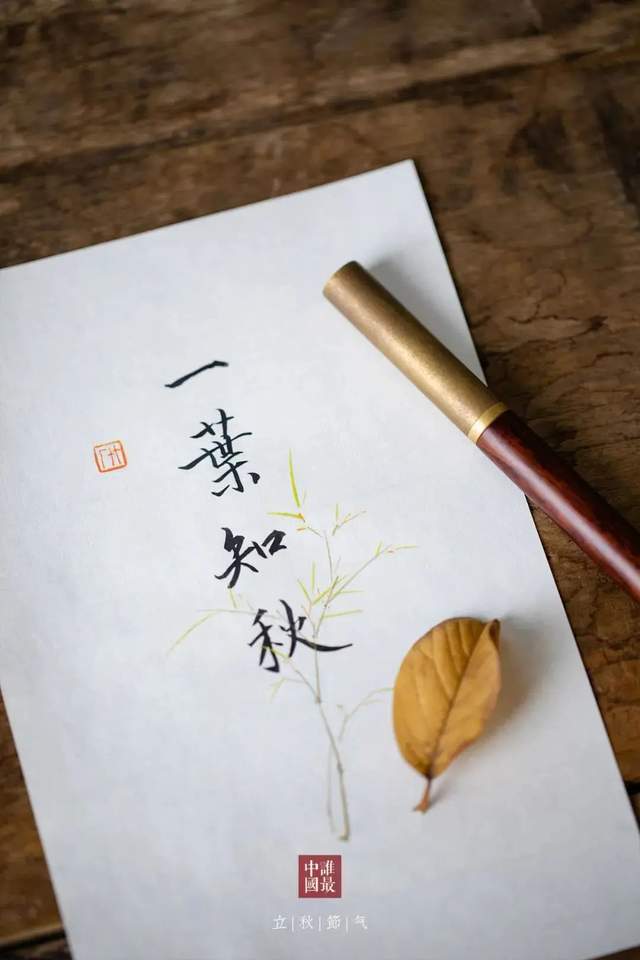 一葉知秋
誰最
中國
立|秋|節|气